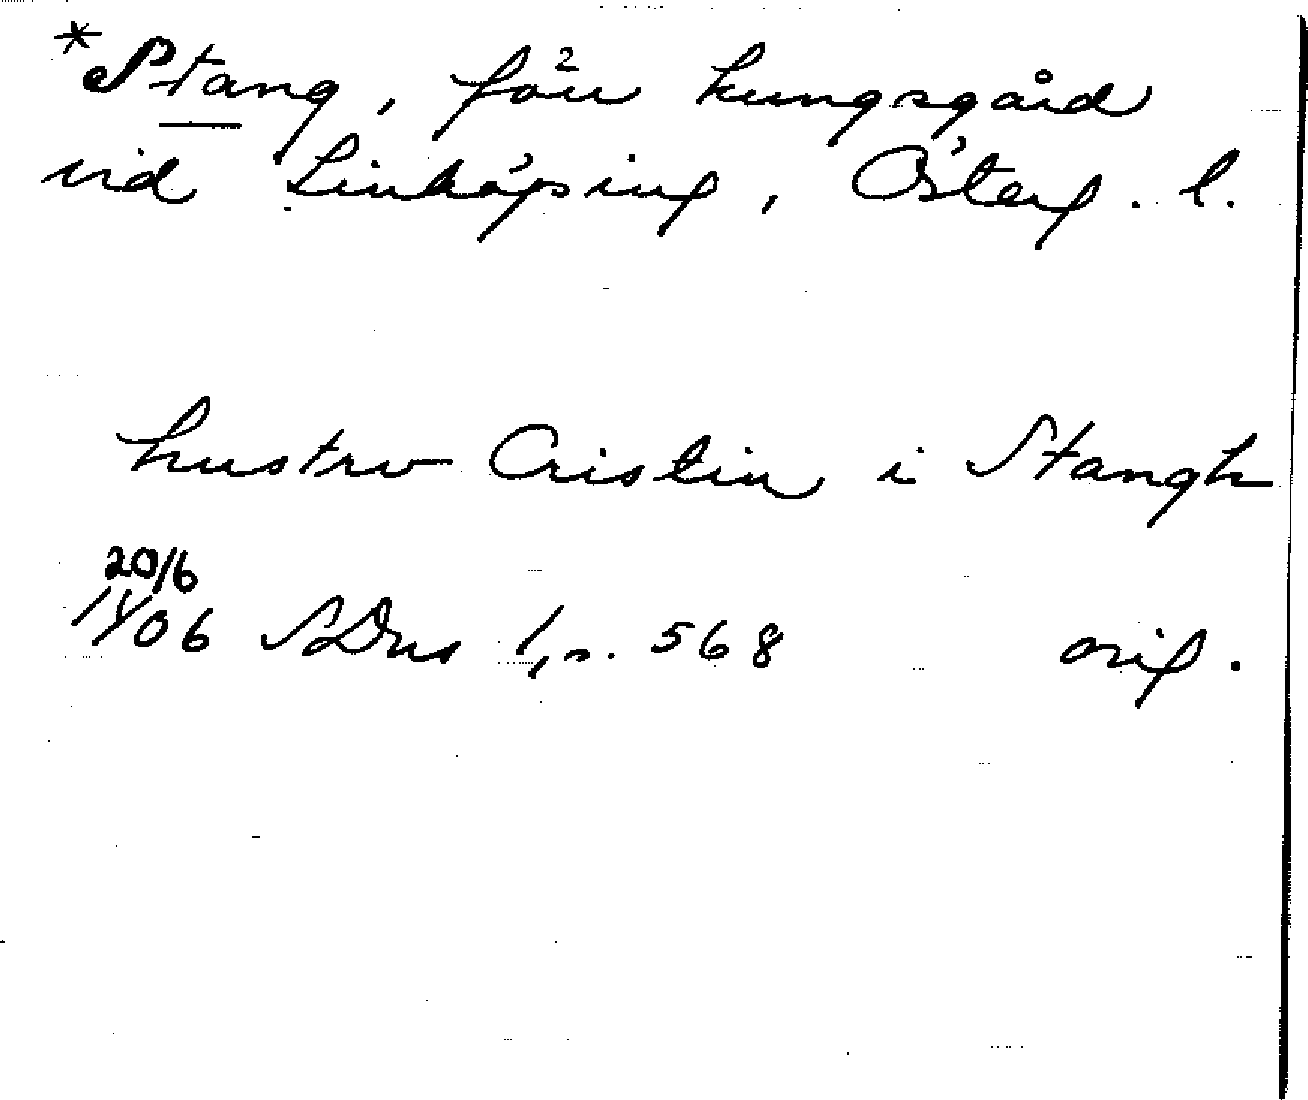 *Stang, förr kungsgård
vid Linköping, Österg. l.
hustrv Cristin i Stangh
20/6
1406 SDns 1, s. 568 orig.